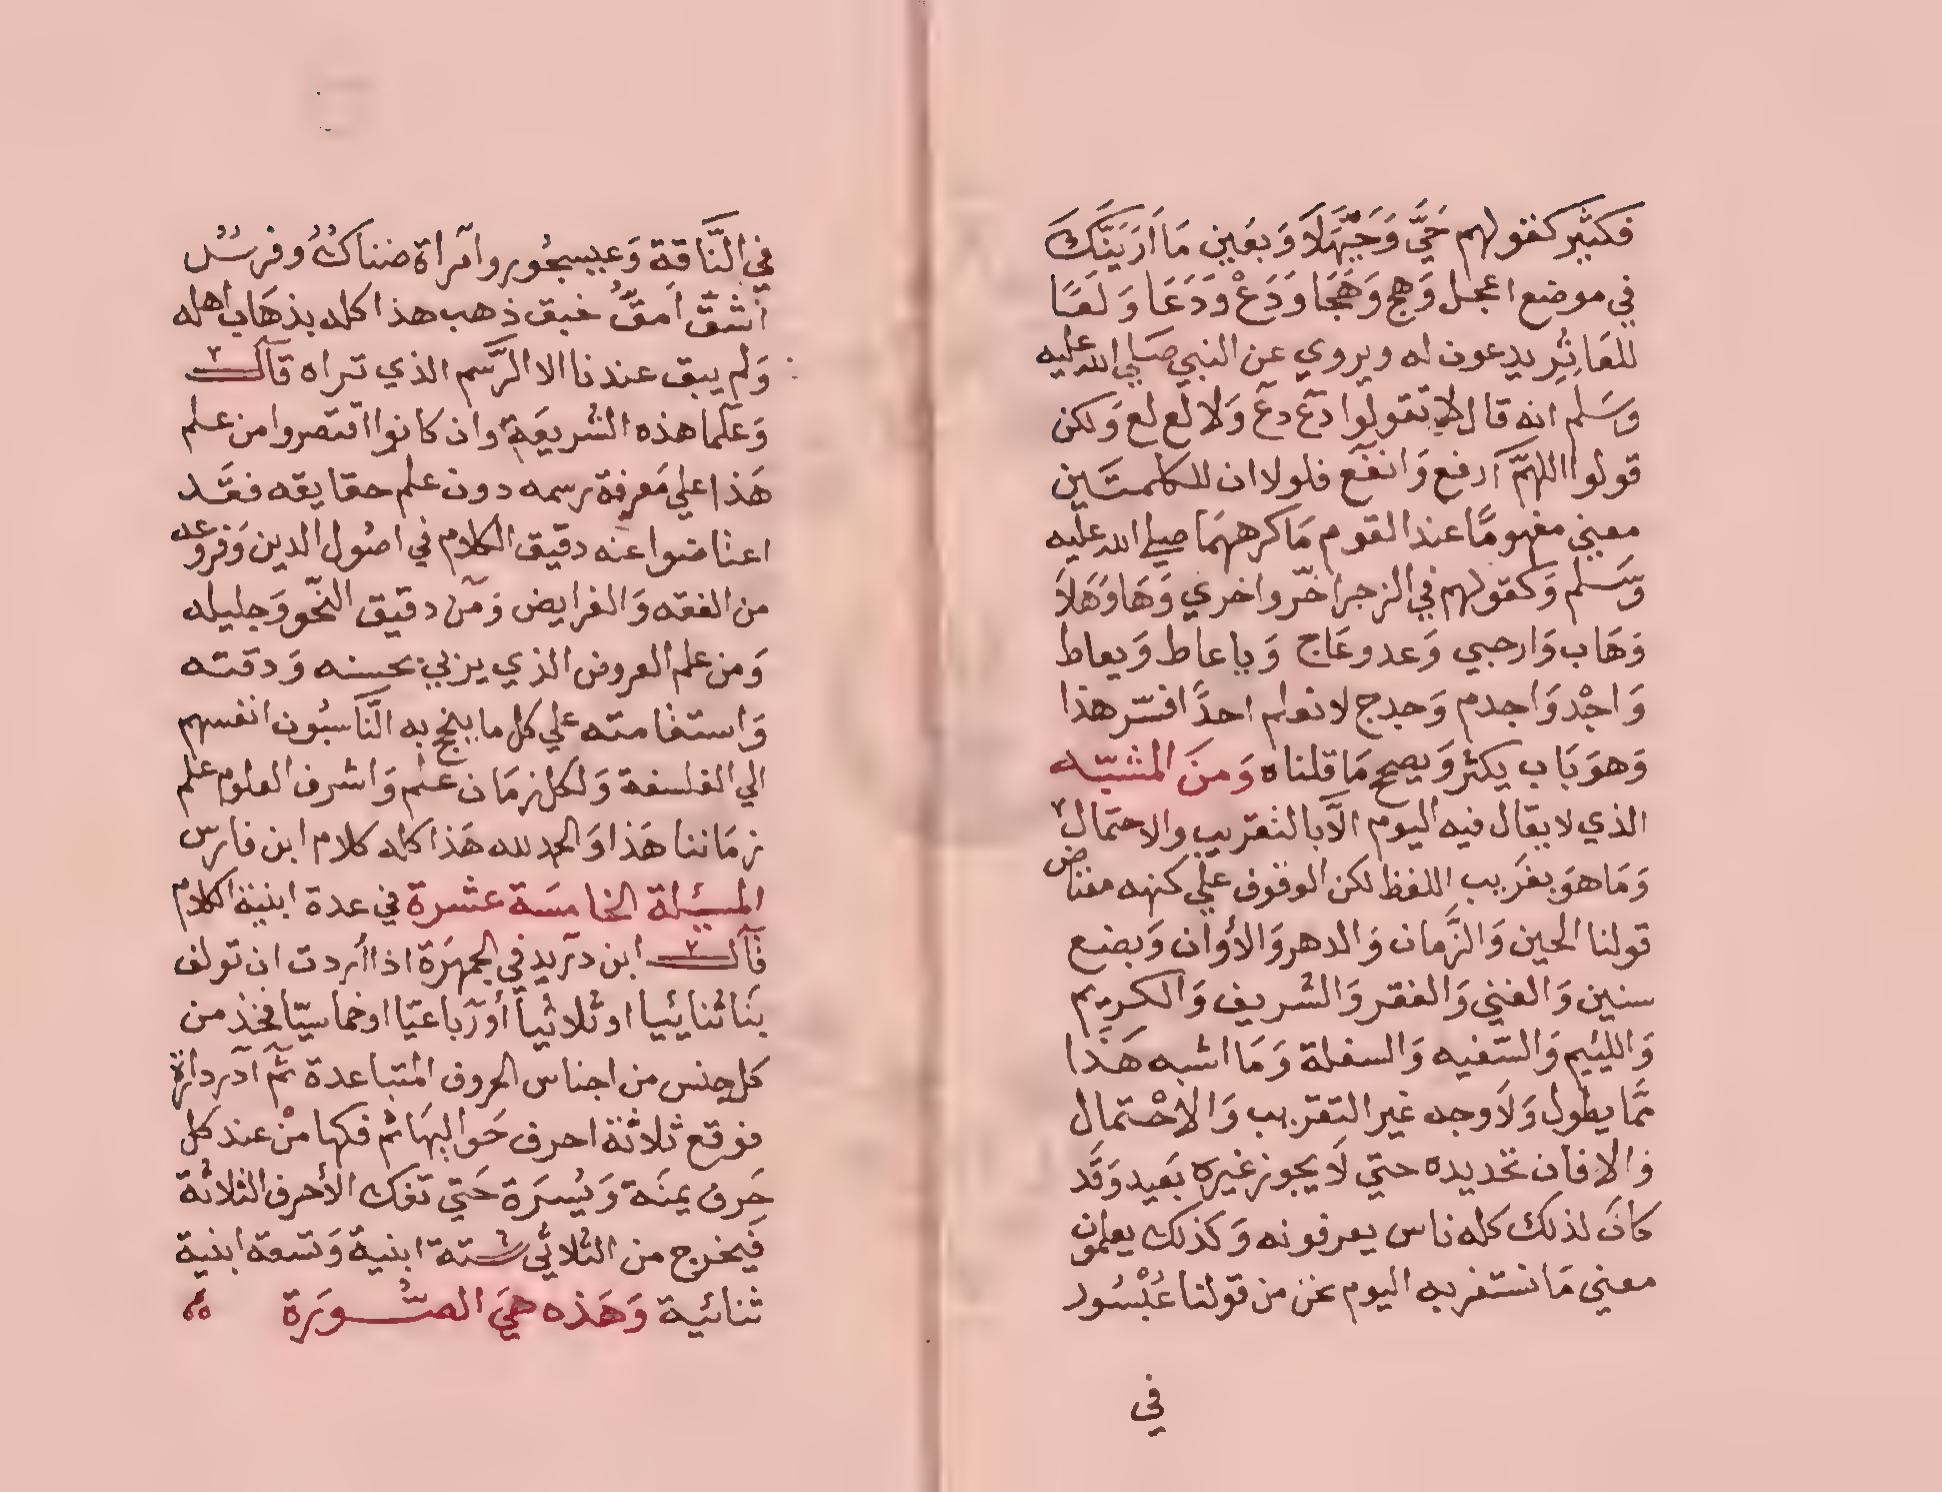 فكثير كقولهم حَيَّ وَحَيَّهَلَا وَبعَين مَا أرَيَنَّكَ
في موضع اعجل وَهج وَهَجَا وَدَعْ وَدَعَا وَلَعًا
للعَاثِر يدعون له ويروي عن النبي صَلي الله عليه
وَسَلم انه قال لا تقولوا دَع دَع وَلا لَع لع وَلكن
قولوا اللهمّ ارفع وَانفَع فلولا ان للكلمتَين
معني مفهومًا عند القوم مَا كرههمَا صلي الله عليه
وَسَلم وَكقولهم في الزجر اخّر واخري وَهَا وَهَلاَ
وَهَاب وَارحبي وَعد وعَاج وَياعاط وَيعاط
وَاجْد وَاجدم وَحدج لا نعلم احدًا فسّر هذا
وَهوَ بَاب يكثر وَيصحح مَا قلناه وَمنَ المشتبه
الذي لا يقال فيه اليوم الّا بالتقريب والاحتمال
وَمَا هوَ بغَريب اللفظ لكن الوقوف علي كنهه معتاض
قولنا الحين وَالزَّمان وَالدهر وَالأوان وَبضع
سنين وَالغني وَالفقر وَالشريف وَالكريم
وَاللئيم وَالسّفيه وَالسفلة وَمَا اشبه هَذَا
ممَّا يطول وَلاَ وجه غير التقريب وَالاحْتمال
والا فان تحديده حتي لَا يجوز غيره بَعيد وَقَد
كانَ لذلك كله ناس يعرفونه وَكذلك يعلمون
معني مَا نستغربه اليوم نحن من قولنا عُبْسُور
في
في النَّاقة وَعيسجُور وامراة ضناك وفرس
اشقّ امقّ خبق ذهب هذا كله بذهَاب اهله
وَلم يبق عندنا الا الرَّسم الذي تراه قال
وَعلما هذه الشريعَة وان كانوا اقتصروا من علم
هَذا علي مَعرفة رسمه دون علم حقايقه فقَد
اعتاضوا عنه دقيق الكلام في اصُول الدين وَفروعه
من الفقه وَالفرايض وَمن دقيق النّحو وَجليله
وَمن علم العروض الذي يربي بحسنه وَدقته
وَاستقامته علي كل ما يبجح به النَّاسبُون انفسهم
الي الفلسفة وَلكل زمَان علم وَاشرف العلوم علم
زمَاننا هَذا وَالحمد لله هَذا كله كلام ابن فارس
المسئلة الخامسَة عشرة في عدة ابنية الكلام
قَال ابن دريد في الجمهَرَة اذا أردت ان تولف
بنَا ثنائيا او ثلاثياً أو رباعيّا او خماسيّا فخذ من
كل جنس من اجناس الحروف المتباعدة ثمّ ادر دارة
فوقع ثلاثة احرف حَواليهَا ثم فكها منْ عند كل
حَرف يمنَة وَيُسرَة حَتي تفك الأحرف الثلاثة
فَيخرج من الثلاثي ستة ابنية وَتسعة ابنية
ثنائية وَهَذه هيَ الصّورَة